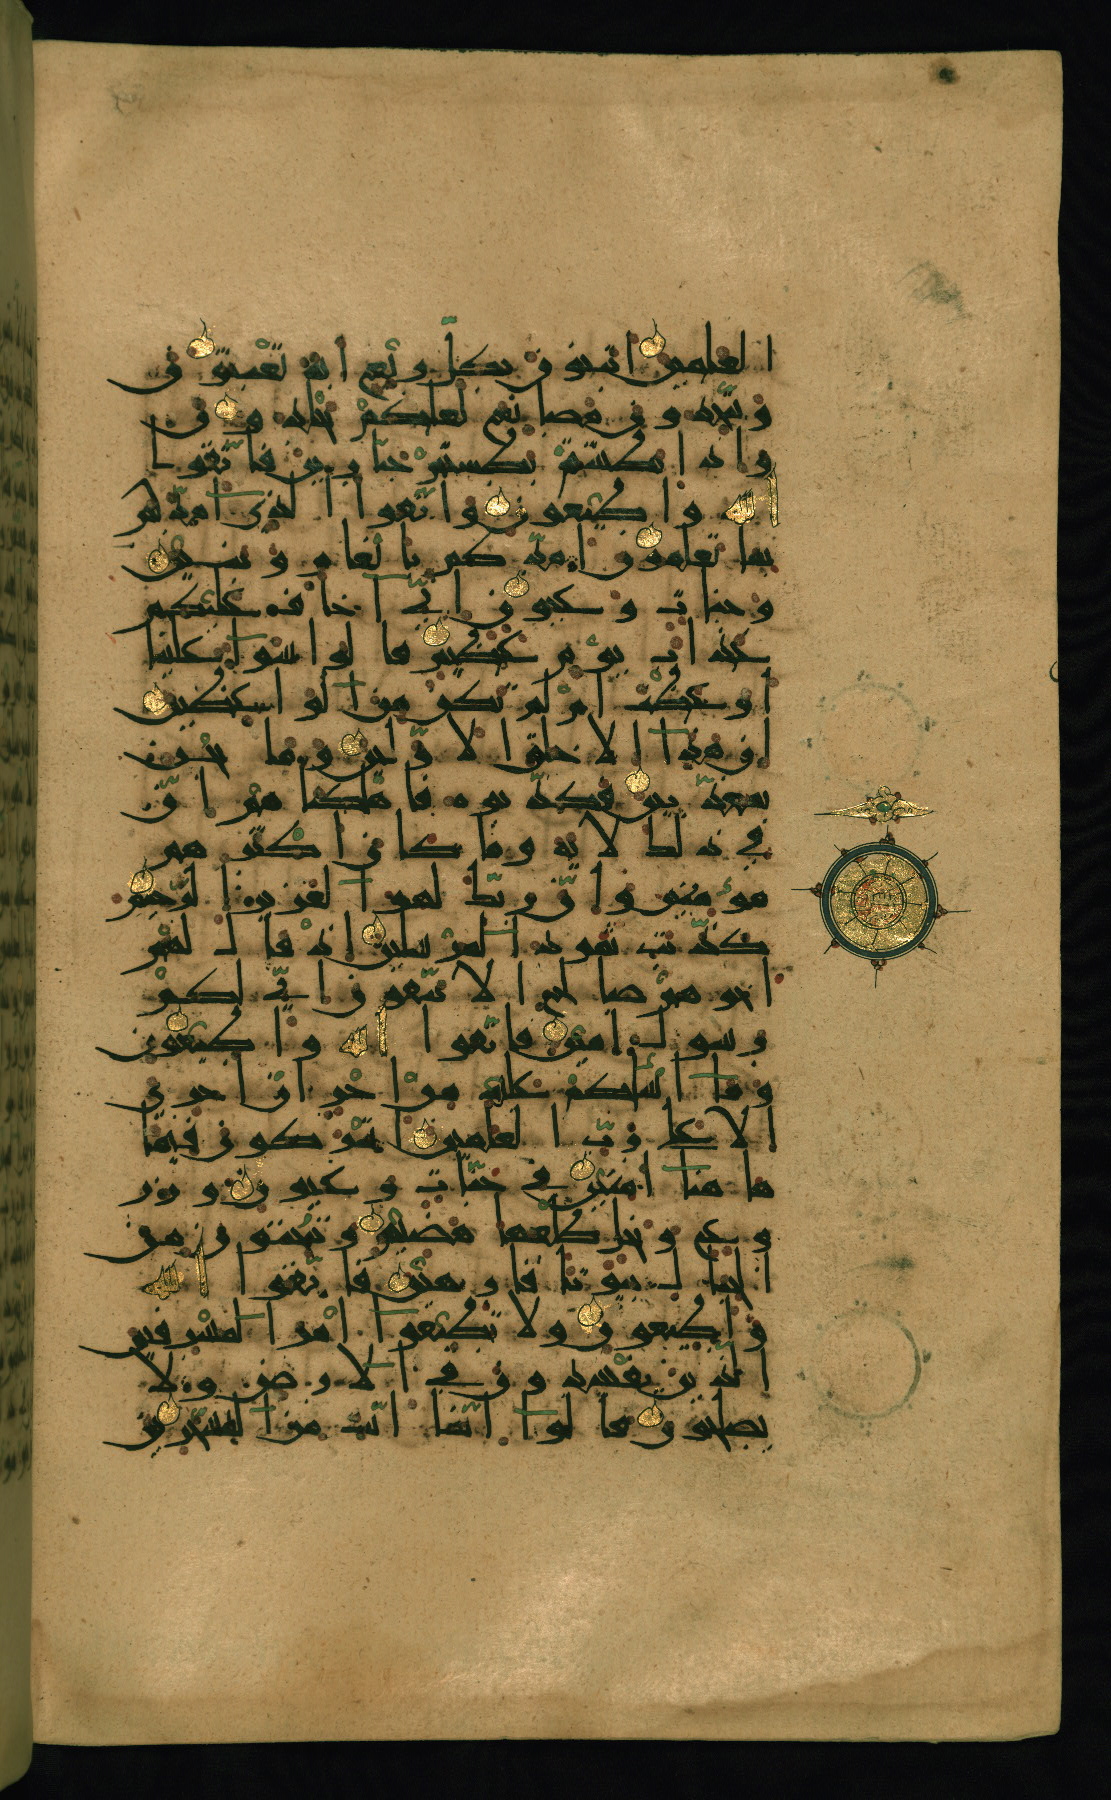 العلمين اتبنون بكل ريع اية تعبثون
وتتخذون مصانع لعلكم تخلدون
واذا بطشتم بطشتم جبارين فاتقوا
الله واطيعون واتقوا الذي امدكم
بما تعلمون امدكم بانعام وبنين
وجنات وعيون اني اخاف عليكم
عذاب يوم عظيم قالوا سوا علينا
اوعظت ام لم تكن من الوعظين
ان هذا الا خلق الاولين وما نحن
بمعذبين فكذبوه فاهلكناهم ان
في ذلك لاية وما كان اكثرهم
مؤمنين وان ربك لهو العزيز الرحيم
كذبت ثمود المرسلين اذ قال لهم
اخوهم صالح الا تتقون اني لكم
رسول امين فاتقوا الله واطيعون
وما اسئلكم عليه من اجر ان اجري
الا على رب العلمين اتتركون فيما
هاهنا امنين في جنات وعيون وزر
وع ونخل طلعها هضيم وتنحتون من
الجبال بيوتا فارهين فاتقوا الله
واطيعون ولا تطيعوا امر المسرفين
الذين يفسدون في الارض ولا
يصلحون قالوا انما انت من المسحرين